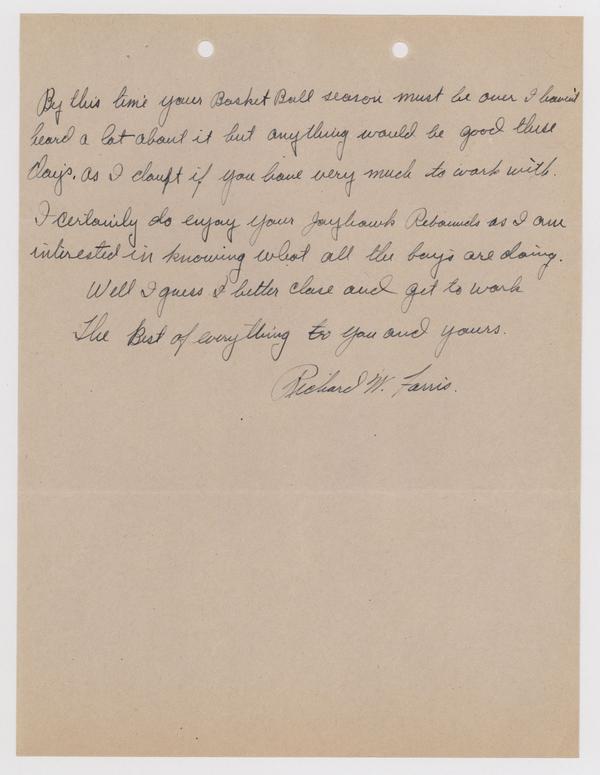 By this time your Basket Ball season must be over I haven't
heard a lot about it but anything would be good these
days. as I doubt if you have very much to work with.
I certainly do enjoy your Jayhawk Rebounds as I am
interested in knowing what all the boys are doing.
Well I guess I better close and get to work
The Best of everything to you and yours.
Richard W. Farris.